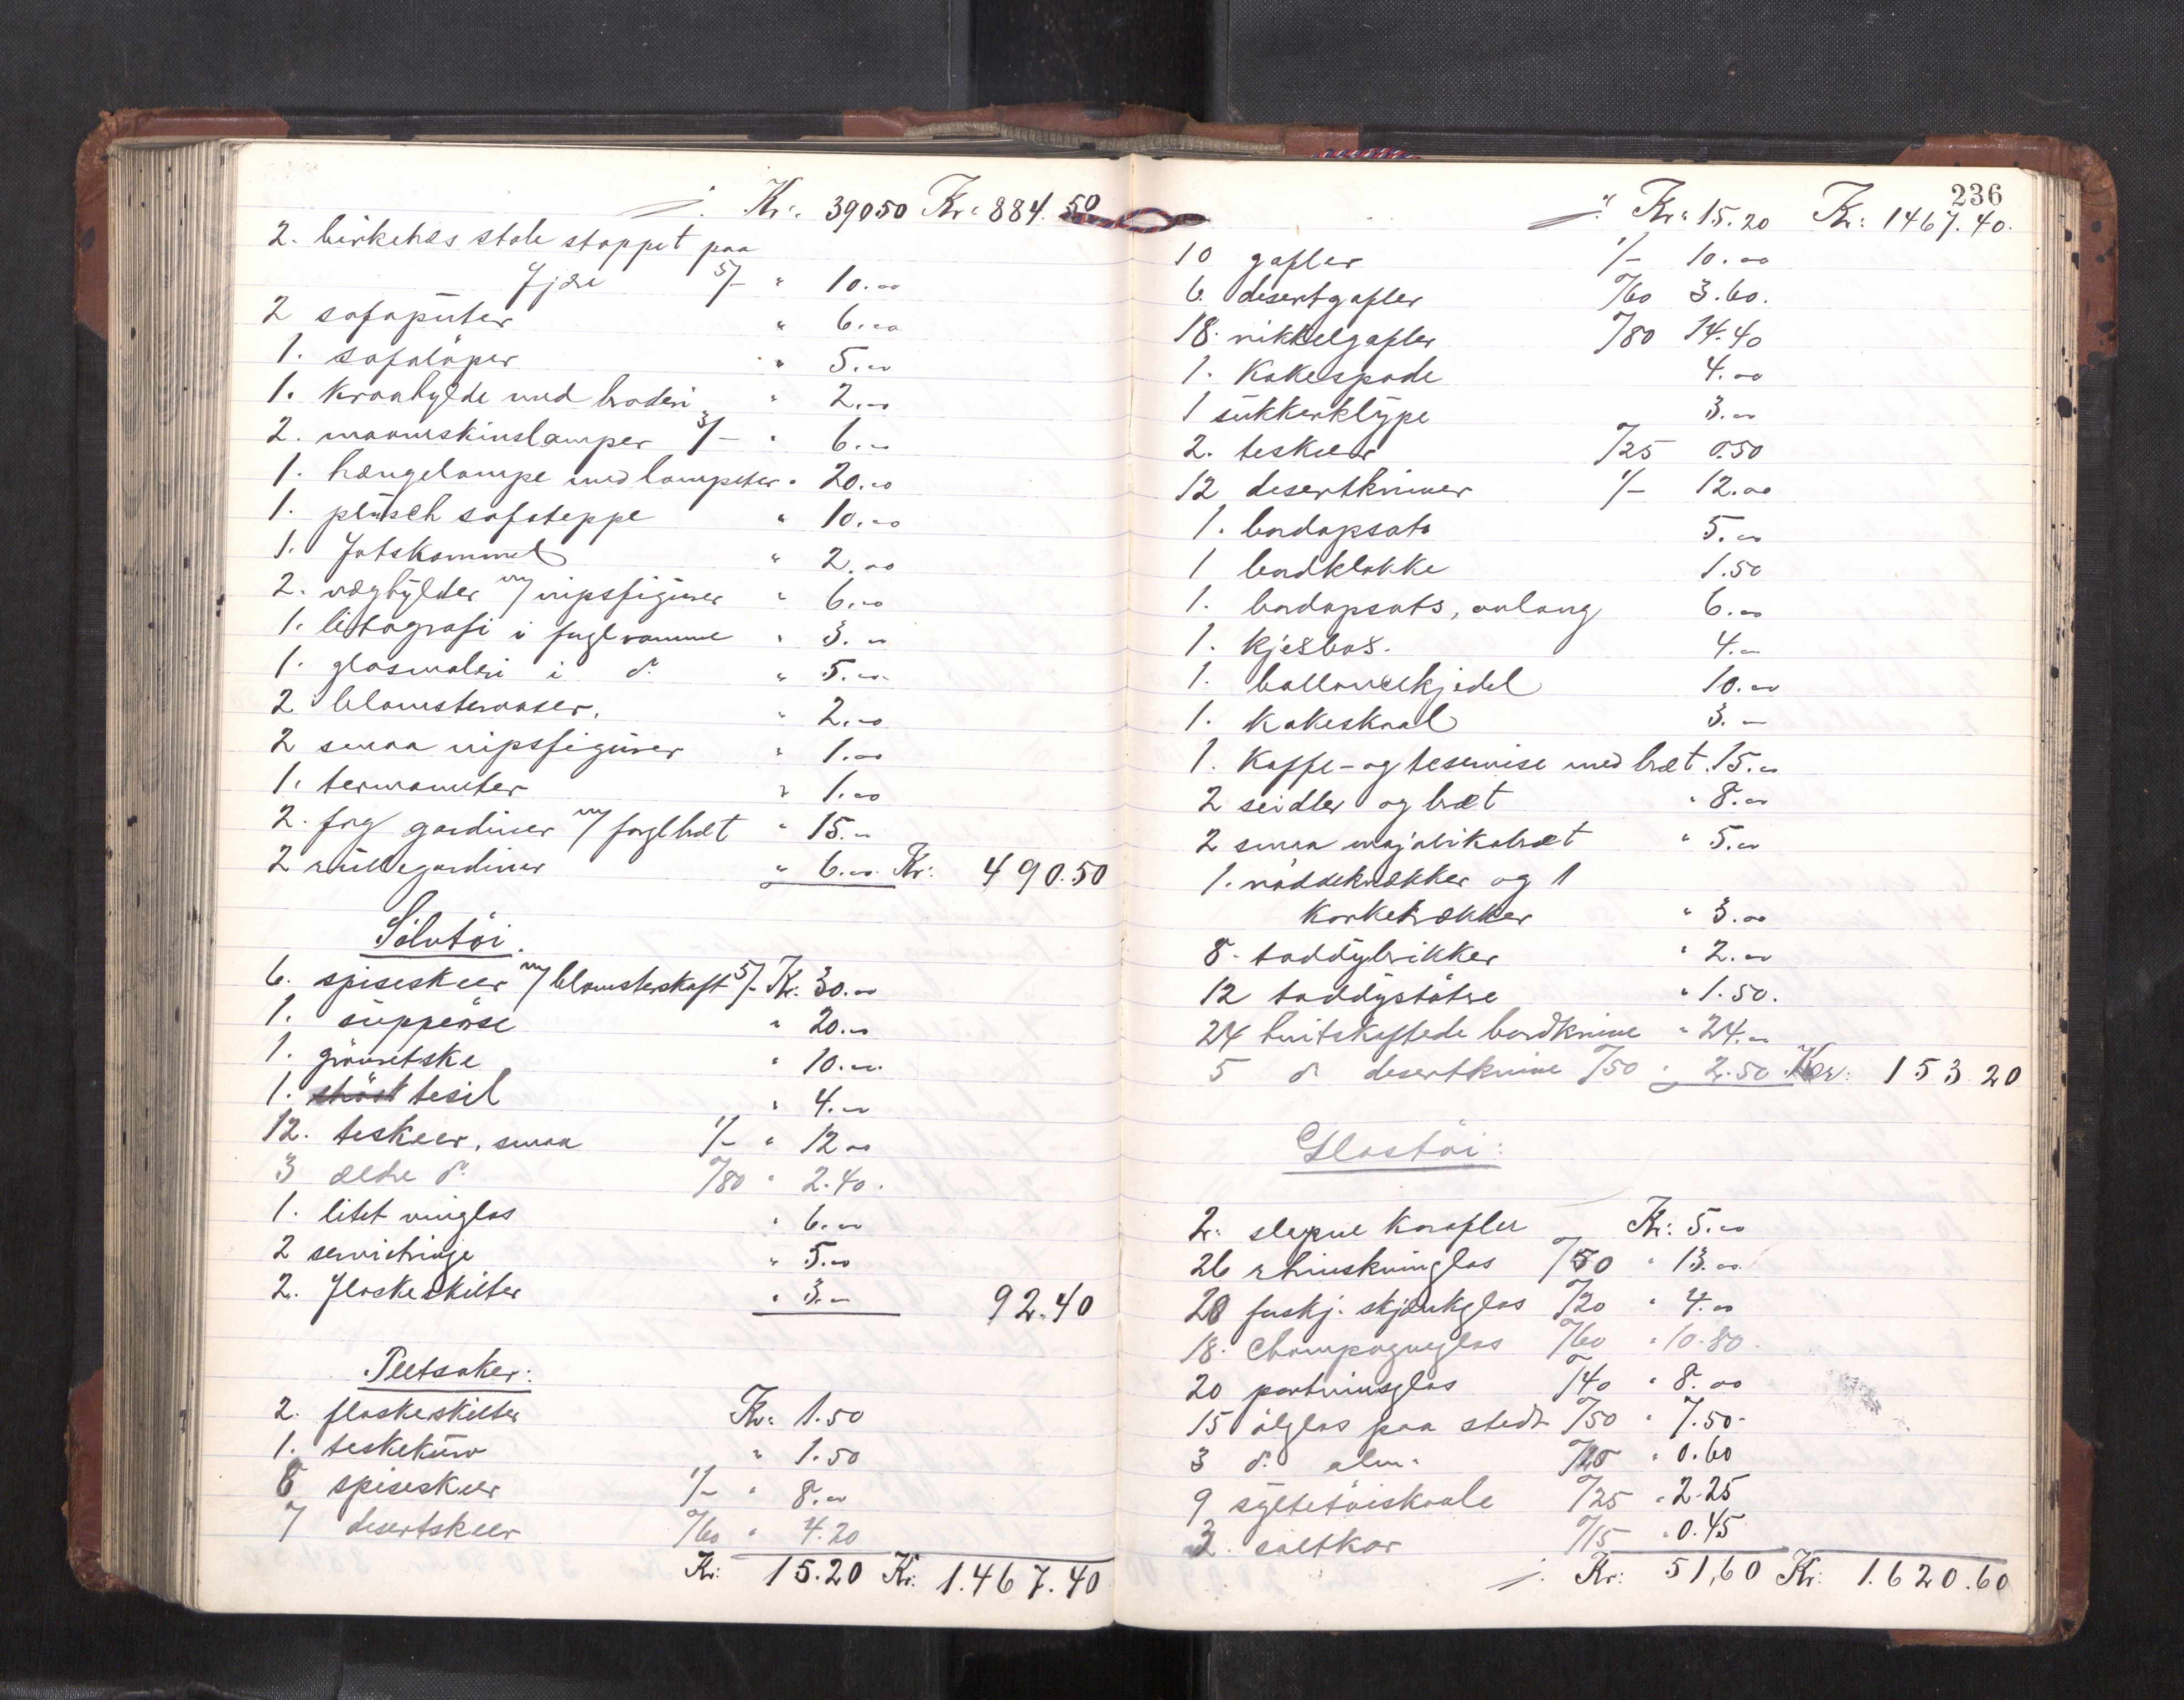 ./. Kr. 390 50 Kr. 884.50
2. birketræs stole stoppet paa
fjære 5/- " 10.00
2 sofaputer " 6.00
1. sofalöper " 5.00
1. kraahylde med broderi " 2.00
2. maaneskinslamper 3/- " 6.00
1. hængelampe med lampetter " 20.00
1. plüsch sofateppe " 10.00
1. fotskammel " 2.00
2. væghylder m/ nipsfigurer " 6.00
1. litografi i fuglramme " 3.00
1. glasmaleri i do. " 5.00
2 blomstervaser. " 2.00
2 smaa nipsfigurer " 1.00
1. termometer " 1.00
2. fag gardiner m/ fuglbræt " 15.00
2 rullegardiner " 6.00 Kr: 490.50
Sölvtöi.
6. spiseskeer m/ blomsterskaft 5/- Kr. 30.00
1. suppeöse " 20.00
1. grönretske " 10.00
1. tesil " 4.00
12. teskeer, smaa 1/- " 12 00
3 ældre do. /80 " 2.40.
1. litet vinglas " 6.00
2 servietringe " 5.00
2. flaskeskilter " 3.00 92.40
Pletsaker:
2. flaskeskilter Kr. 1.50
1. teskekurv " 1.50
8 spiseskeer 1/- " 8.00
7 desertskeer /60 " 4.20
Kr: 15.20 Kr. 1.467.40
236
./. Kr. 15.20 Kr: 1467.40.
10 gafler 1/- 10.00
6. desertgafler /60 3.60.
18. nikkelgafler /80 14.40
1. Kakespade 4.00
1 sukkerklype 3.00
2. teskeer /25 0.50
12 desertkniver 1/- 12.00
1. bordopsats 5.00
1 bordklokke 1.50
1. bordopsats, avlang 6.00
1. kjeksbos. 4.00
1. ballonekjedel 10.00
1. kakeskaal 3.00
1. Kaffe- og teservise med bræt. 15.00
2 seidler og bræt " 8.00
2 smaa majolikabræt " 5.00
1. nöddeknækker og 1
korketrækker " 3.00
8. toddybrikker " 2.00
12 toddystötre " 1.50.
24 hvitskaftede bordknive " 24.00
5 do desertknive /50 " 2.50 Kr: 153 20
Glastöi:
2. slepne karafler Kr: 5.00
26 rhinskvinglas /50 " 13.00
20 forskj. skjænkglas /20 " 4.00
18. Champagneglas /60 " 10.80.
20 portvinsglas /40 " 8.00
15 ölglas paa stedt /50 " 7.50.
3 do. alm. /20 " 0.60
9 syltetöiskaale /25 " 2.25
3. saltkar /15 " 0.45
./. Kr: 51,60 Kr: 1.620.60